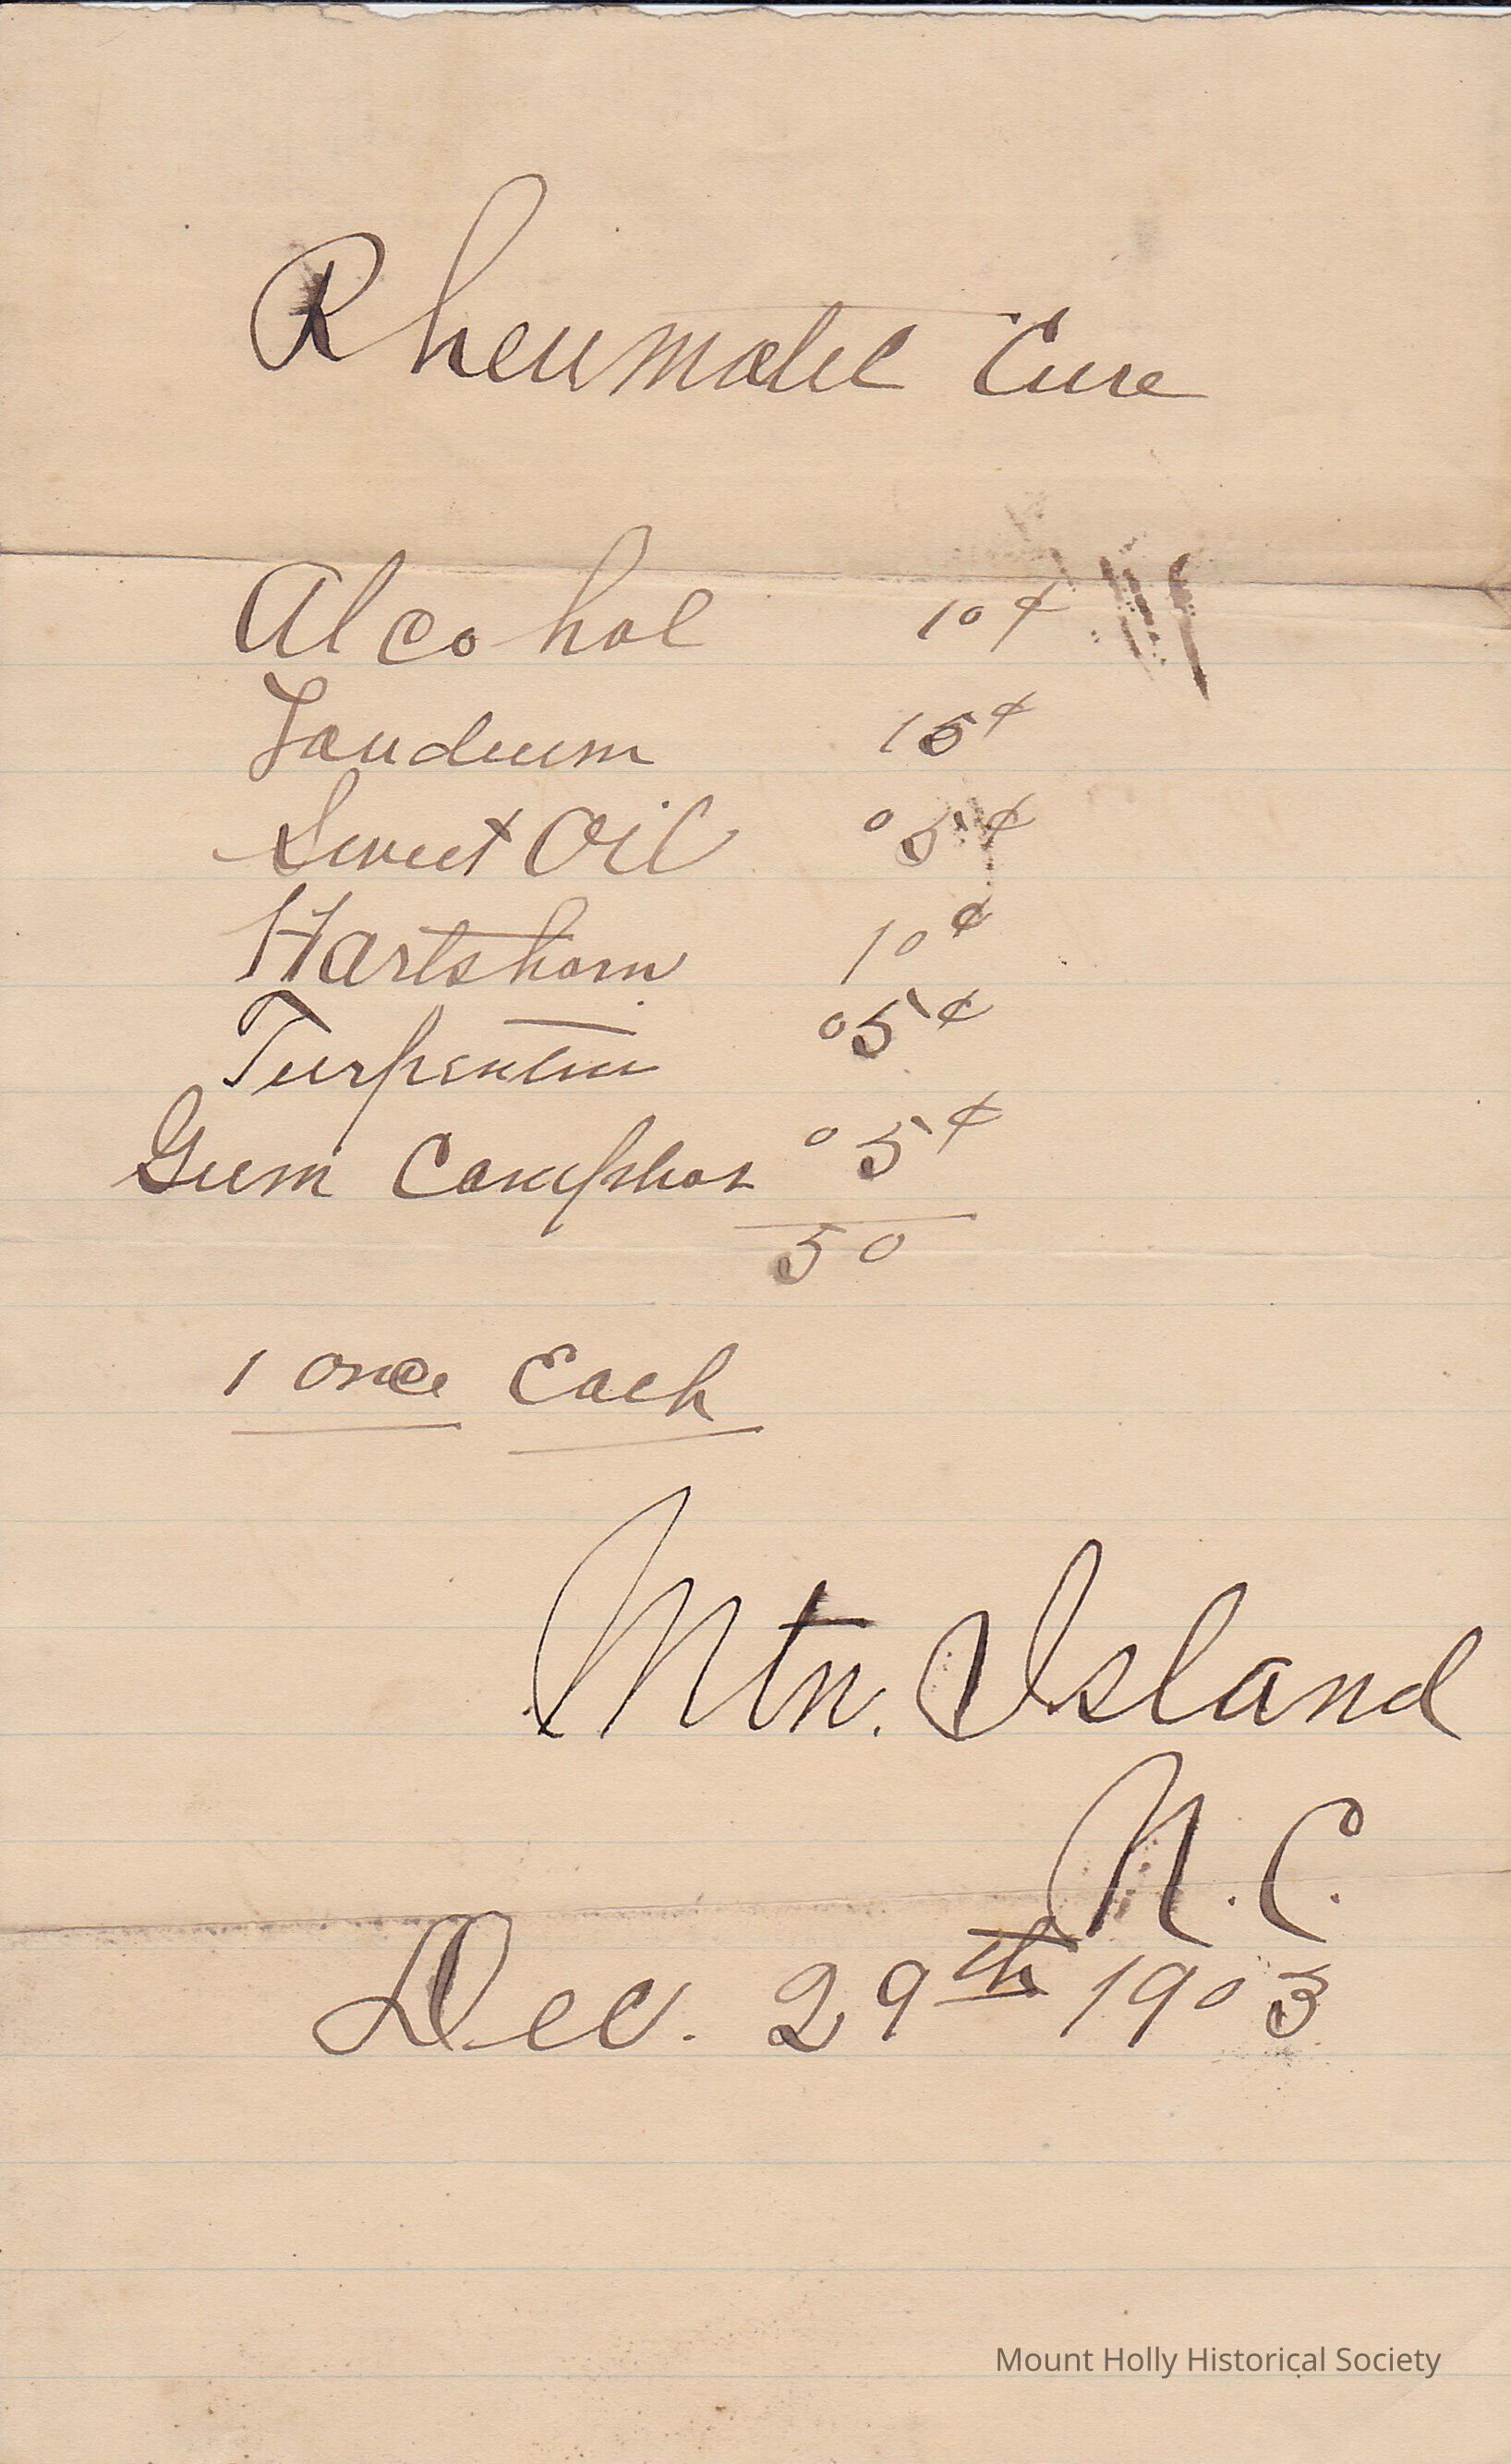 Rheumatic Cure
Alcohol 10¢
Laudnum 15¢
Sweet Oil 05¢
Hartshorn 10¢
Turpentin 05¢
Gum Camphor 05¢
50
1 Once Each
Mtn. Island
N.C.
Dec. 29th 1903
Mount Holly Historical Society